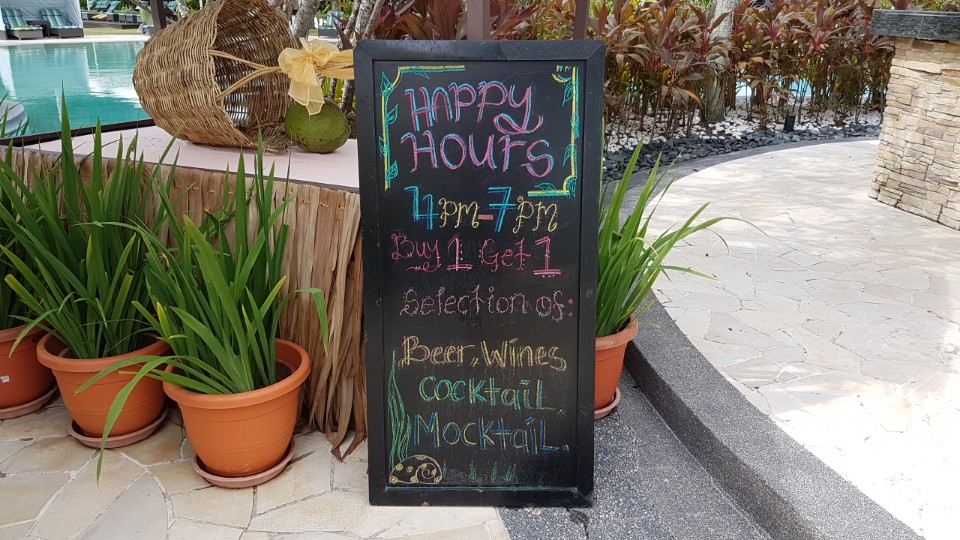 HAPPY
HOURS
4PM-7PM
Buy 1 Get 1
Selection of:
Beer, Wines
COCKtaiL,
MocktaiL.